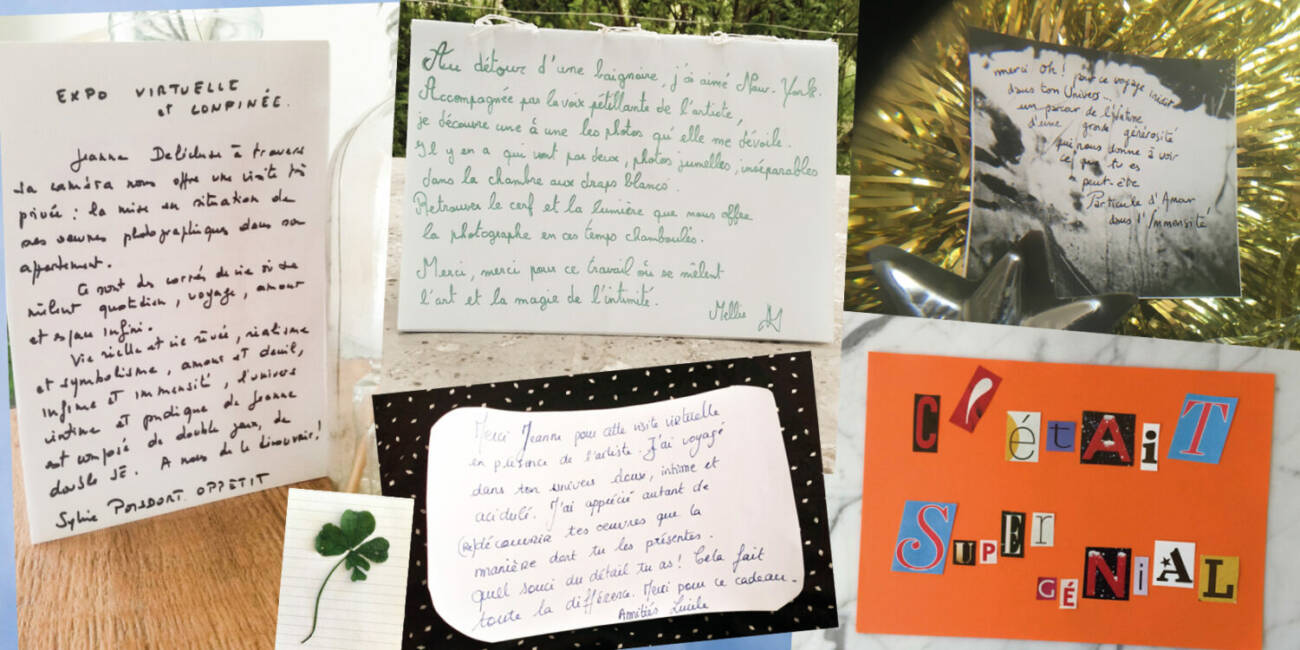 EXPO VIRTUELLE
et CONFINÉE.
Jeanne à travers
sa caméra nous offre une visite très
privée : la mise en situation de
ses oeuvres photographiques dans son
appartement.
Ce sont des carrés de vie où se
mêlent quotidien, voyage, amour
et espace infini.
Vie réelle et vie rêvée, réalisme
et symbolisme, amour et deuil,
infime et immensité, l'univers
intime et pudique de Jeanne
est composé de double jeux, de
double JE. A nous de le découvrir !
Sylvie
Au détour d'une baignoire, j'ai aimé New-York.
Accompagnée par la voix pétillante de l'artiste,
je découvre une à une les photos qu'elle me dévoile.
Il y en a qui vont par deux, photos jumelles, inséparables
dans la chambre aux draps blancs.
Retrouver le cerf et la lumière que nous offre
la photographe en ces temps chamboulés.
Merci, merci pour ce travail où se mêlent
l'art et la magie de l'intimité.
Mellie
merci oh ! pour ce voyage
dans ton Univers...
un parcours de
d'une grande générosité
qui nous donne à voir
ce que tu es
peut-être
Particule d'Amour
dans l'Immensité
Merci Jeanne pour cette visite virtuelle
en présence de l'artiste. J'ai voyagé
dans ton univers doux, intime et
acidulé. J'ai apprécié autant de
(Re)découvrir tes oeuvres que la
manière dont tu les présentes.
Quel souci du détail tu as ! Cela fait
toute la différence. Merci pour ce cadeau.
Amitiés Lucile
C'étAiT
SUPER
GÉNiAL